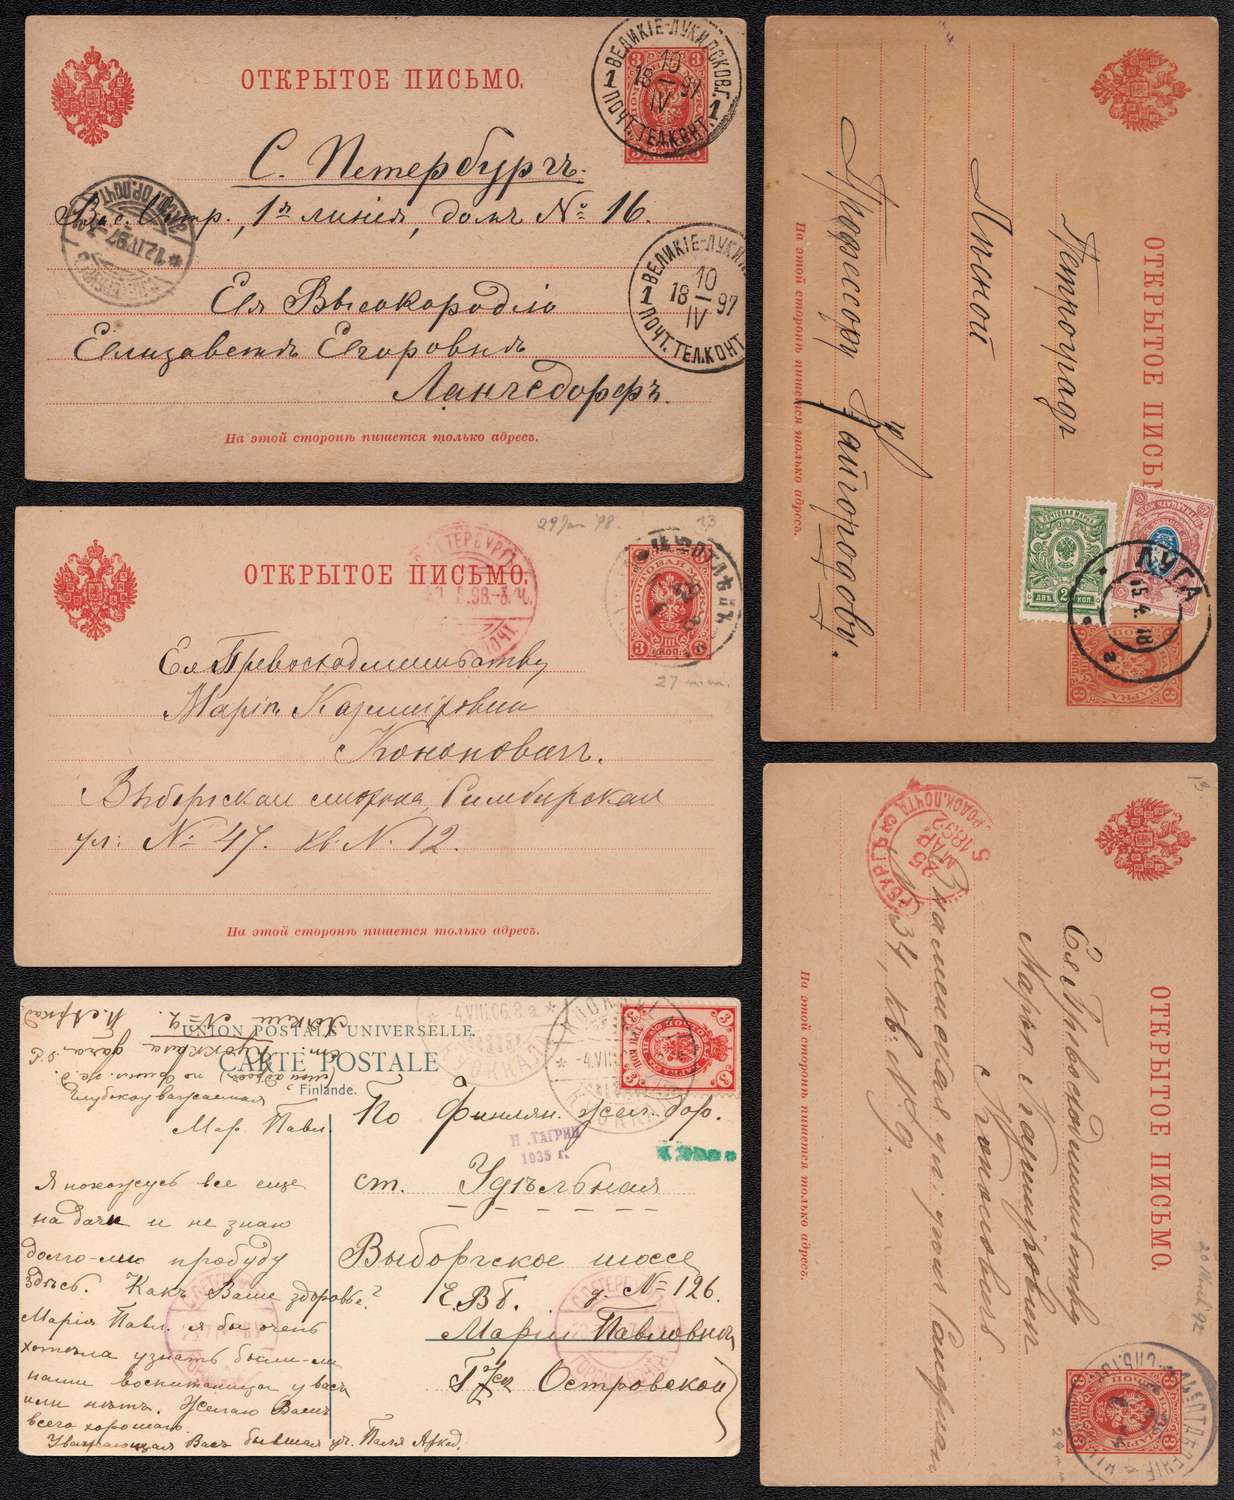 ОТКРЫТОЕ ПИСЬМО.
ВЕЛИКІЕ-ЛУКИ ПСКОВ.Г.
10
18 — 97
IV
1 ПОЧТ.ТЕЛ.КОНТ. 1
С. Петербургъ.
Вас. Остр., 1я линія, домъ № 16.
ВЕЛИКІЕ-ЛУКИ
10
18 — 97
IV
1 ПОЧТ.ТЕЛ.КОНТ
Ея Высокородію
Елизаветѣ Егоровнѣ
Лангедорфъ.
На этой сторонѣ пишется только адресъ.
29 Jan '98.
13
ОТКРЫТОЕ ПИСЬМО.
27
Ея Превосходительству
Маріи Казиміровнѣ
Кононовичъ.
Выборгская сторона, Симбирская
ул: № 47. кв. N. 12.
На этой сторонѣ пишется только адресъ.
UNION POSTALE UNIVERSELLE.
CARTE POSTALE
Finlande.
Глубокоуважаемая
Мар. Павл.
Я нахожусь все еще
на дачѣ и не знаю
долго-ли пробуду
здѣсь. Какъ Ваше здоровье?
Марія Павл. я бы очень
хотѣла узнать были-ли
наши воспитанницы у васъ
или нѣтъ. Желаю Вамъ
всего хорошаго.
Уважающая Васъ бывшая уч. Паля Аркад.
4.VIII.06. 8 a
По Финлян. жел. дор.
Н. ТАГРИН
1935 г.
ст. Удѣльная
Выборгское шоссе
д. № 126.
Е.В б.
Маріи Павловнѣ
Г-жѣ Островской
ОТКРЫТОЕ ПИСЬМО.
Петроградъ
Лѣсной
Профессору
Кайгородову.
На этой сторонѣ пишется только адресъ.
ПОЧТОВАЯ МАРКА
ДВѢ 2 КОП.
ЛУГА
15.4.18
а
ОТКРЫТОЕ ПИСЬМО.
25
МАР
1892
5
Ея Превосходительству
Маріи Казиміровнѣ
Кононовичъ.
Знаменская ул: уголъ
N 34, кв. № 9.
На этой сторонѣ пишется только адресъ.